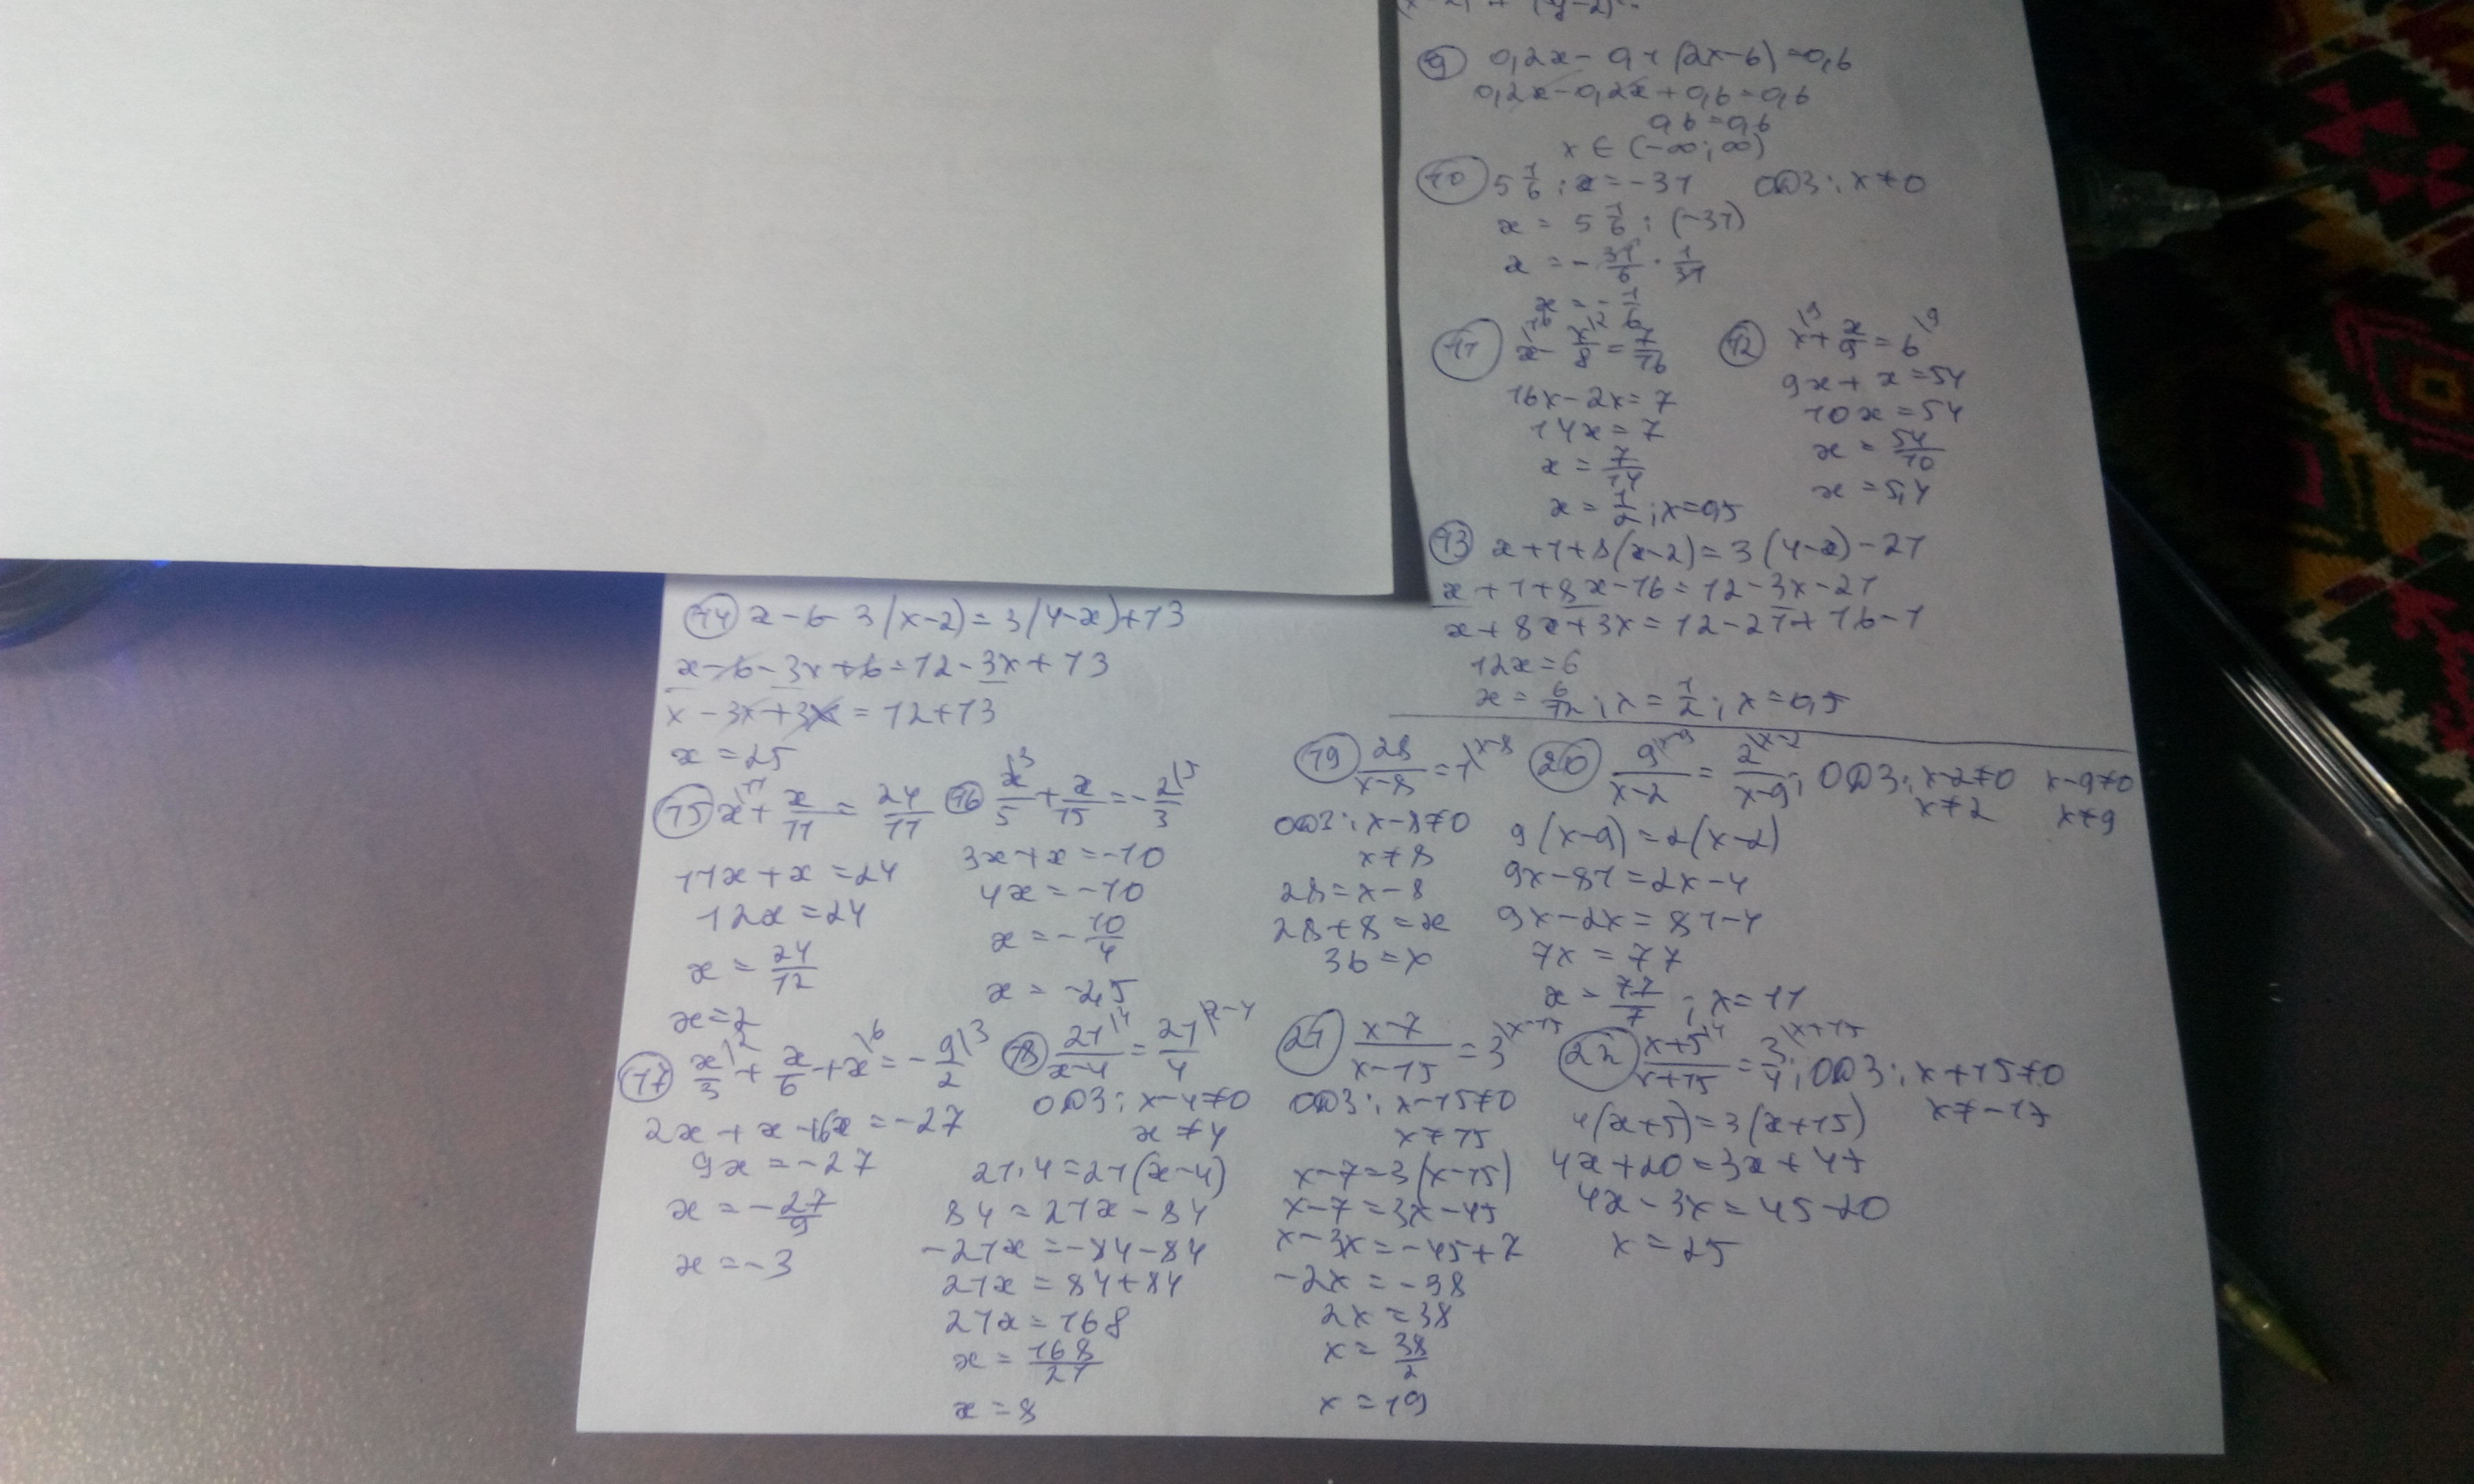 ⑨ 0,2x - 0,1(2x-6)=0,6
0,2x-0,2x+0,6=0,6
0,6=0,6
x ∈ (-∞; ∞)
⑩ 5 1/6 : x = -31 ОДЗ: x≠0
x = 5 1/6 : (-31)
x = - 31/6 · 1/31
x = - 1/6
⑪ x\16 - x/8\2 = 7/16
16x-2x=7
14x=7
x = 7/14
x = 1/2 ; x=0,5
⑫ x\9 + x/9 = 6\9
9x+x=54
10x=54
x = 54/10
x = 5,4
⑬ x+1+8(x-2)=3(4-x)-21
x+1+8x-16=12-3x-21
x+8x+3x=12-21+16-1
12x=6
x = 6/12 ; x = 1/2 ; x=0,5
⑭ x-6-3(x-2)=3(4-x)+13
x-6-3x+6=12-3x+13
x-3x+3x=12+13
x=25
⑮ x\11 + x/11 = 24/11
11x+x=24
12x=24
x = 24/12
x=2
⑯ x/5\3 + x/15 = - 2/3\5
3x+x=-10
4x=-10
x = - 10/4
x = -2,5
⑰ x/3\2 + x/6 + x\6 = - 9/2\3
2x+x+6x=-27
9x=-27
x = - 27/9
x=-3
⑱ 21/(x-4)\4 = 21/4\x-4
ОДЗ: x-4≠0
x≠4
21·4=21(x-4)
84=21x-84
-21x=-84-84
21x=84+84
21x=168
x = 168/21
x=8
⑲ 28/(x-8) = 1\x-8
ОДЗ: x-8≠0
x≠8
28=x-8
28+8=x
36=x
⑳ 9/(x-2)\x-9 = 2/(x-9)\x-2 ; ОДЗ: x-2≠0 x-9≠0
x≠2 x≠9
9(x-9)=2(x-2)
9x-81=2x-4
9x-2x=81-4
7x=77
x = 77/7 ; x=11
㉑ (x-7)/(x-15) = 3\x-15
ОДЗ: x-15≠0
x≠15
x-7=3(x-15)
x-7=3x-45
x-3x=-45+7
-2x=-38
2x=38
x = 38/2
x=19
㉒ (x+5)/(x+15)\4 = 3/4\x+15 ; ОДЗ: x+15≠0
x≠-15
4(x+5)=3(x+15)
4x+20=3x+45
4x-3x=45-20
x=25